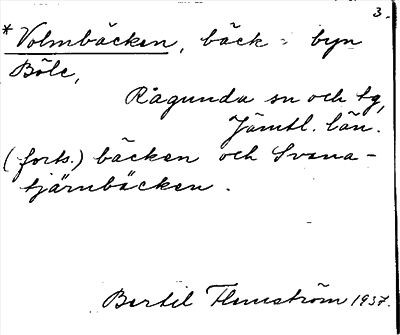 3.
* Volmbäcken, bäck i byn
Böle,
Ragunda sn och tg,
Jämtl. län.
(forts.) bäcken och Svana-
tjärnbäcken.
Bertil Flemström 1937.